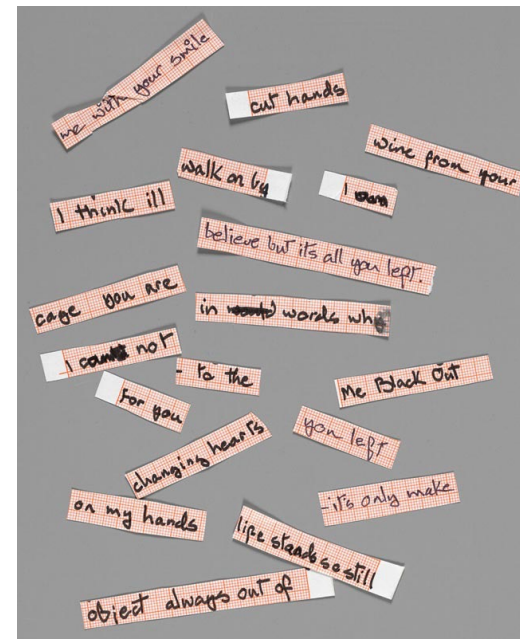 me with your smile
cut hands
wine from your
walk on by
I
I think ill
believe but its all you left.
cage you are
in words who
I not
- to the
Me Black Out
for you
you left
changing hearts
- it's only make
on my hands
life stands so still
object always out of